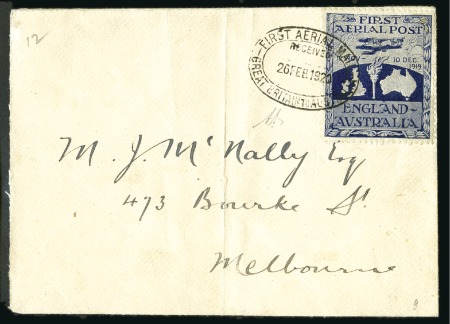 12
FIRST AERIAL MAIL
RECEIVED
26 FEB 1920
GREAT BRITAIN AUST
FIRST
AERIAL POST
12 NOV. 10 DEC.
1919
ENGLAND-
AVSTRALIA
M. J. McNally Esq
473 Bourke St.
Melbourne
9